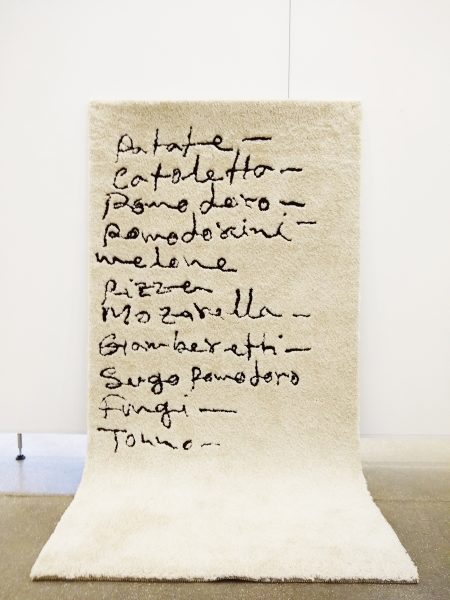 Patate –
Catoletta –
Pomodoro –
Pomodorini –
melone
Pizza
Mozarella –
Giamberetti –
Sugo Pomodoro
Fungi –
Tonno –